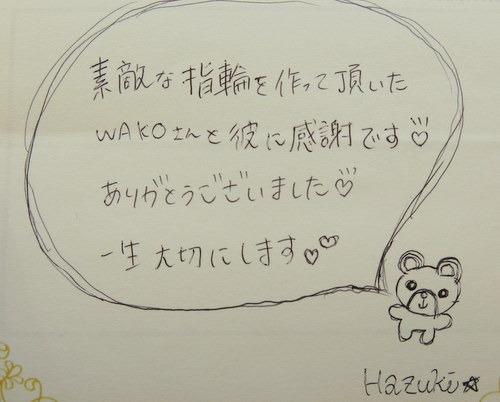 素敵な指輪を作って頂いた
WAKOさんと彼に感謝です♡
ありがとうございました♡
一生大切にします♡♡
Hazuki☆